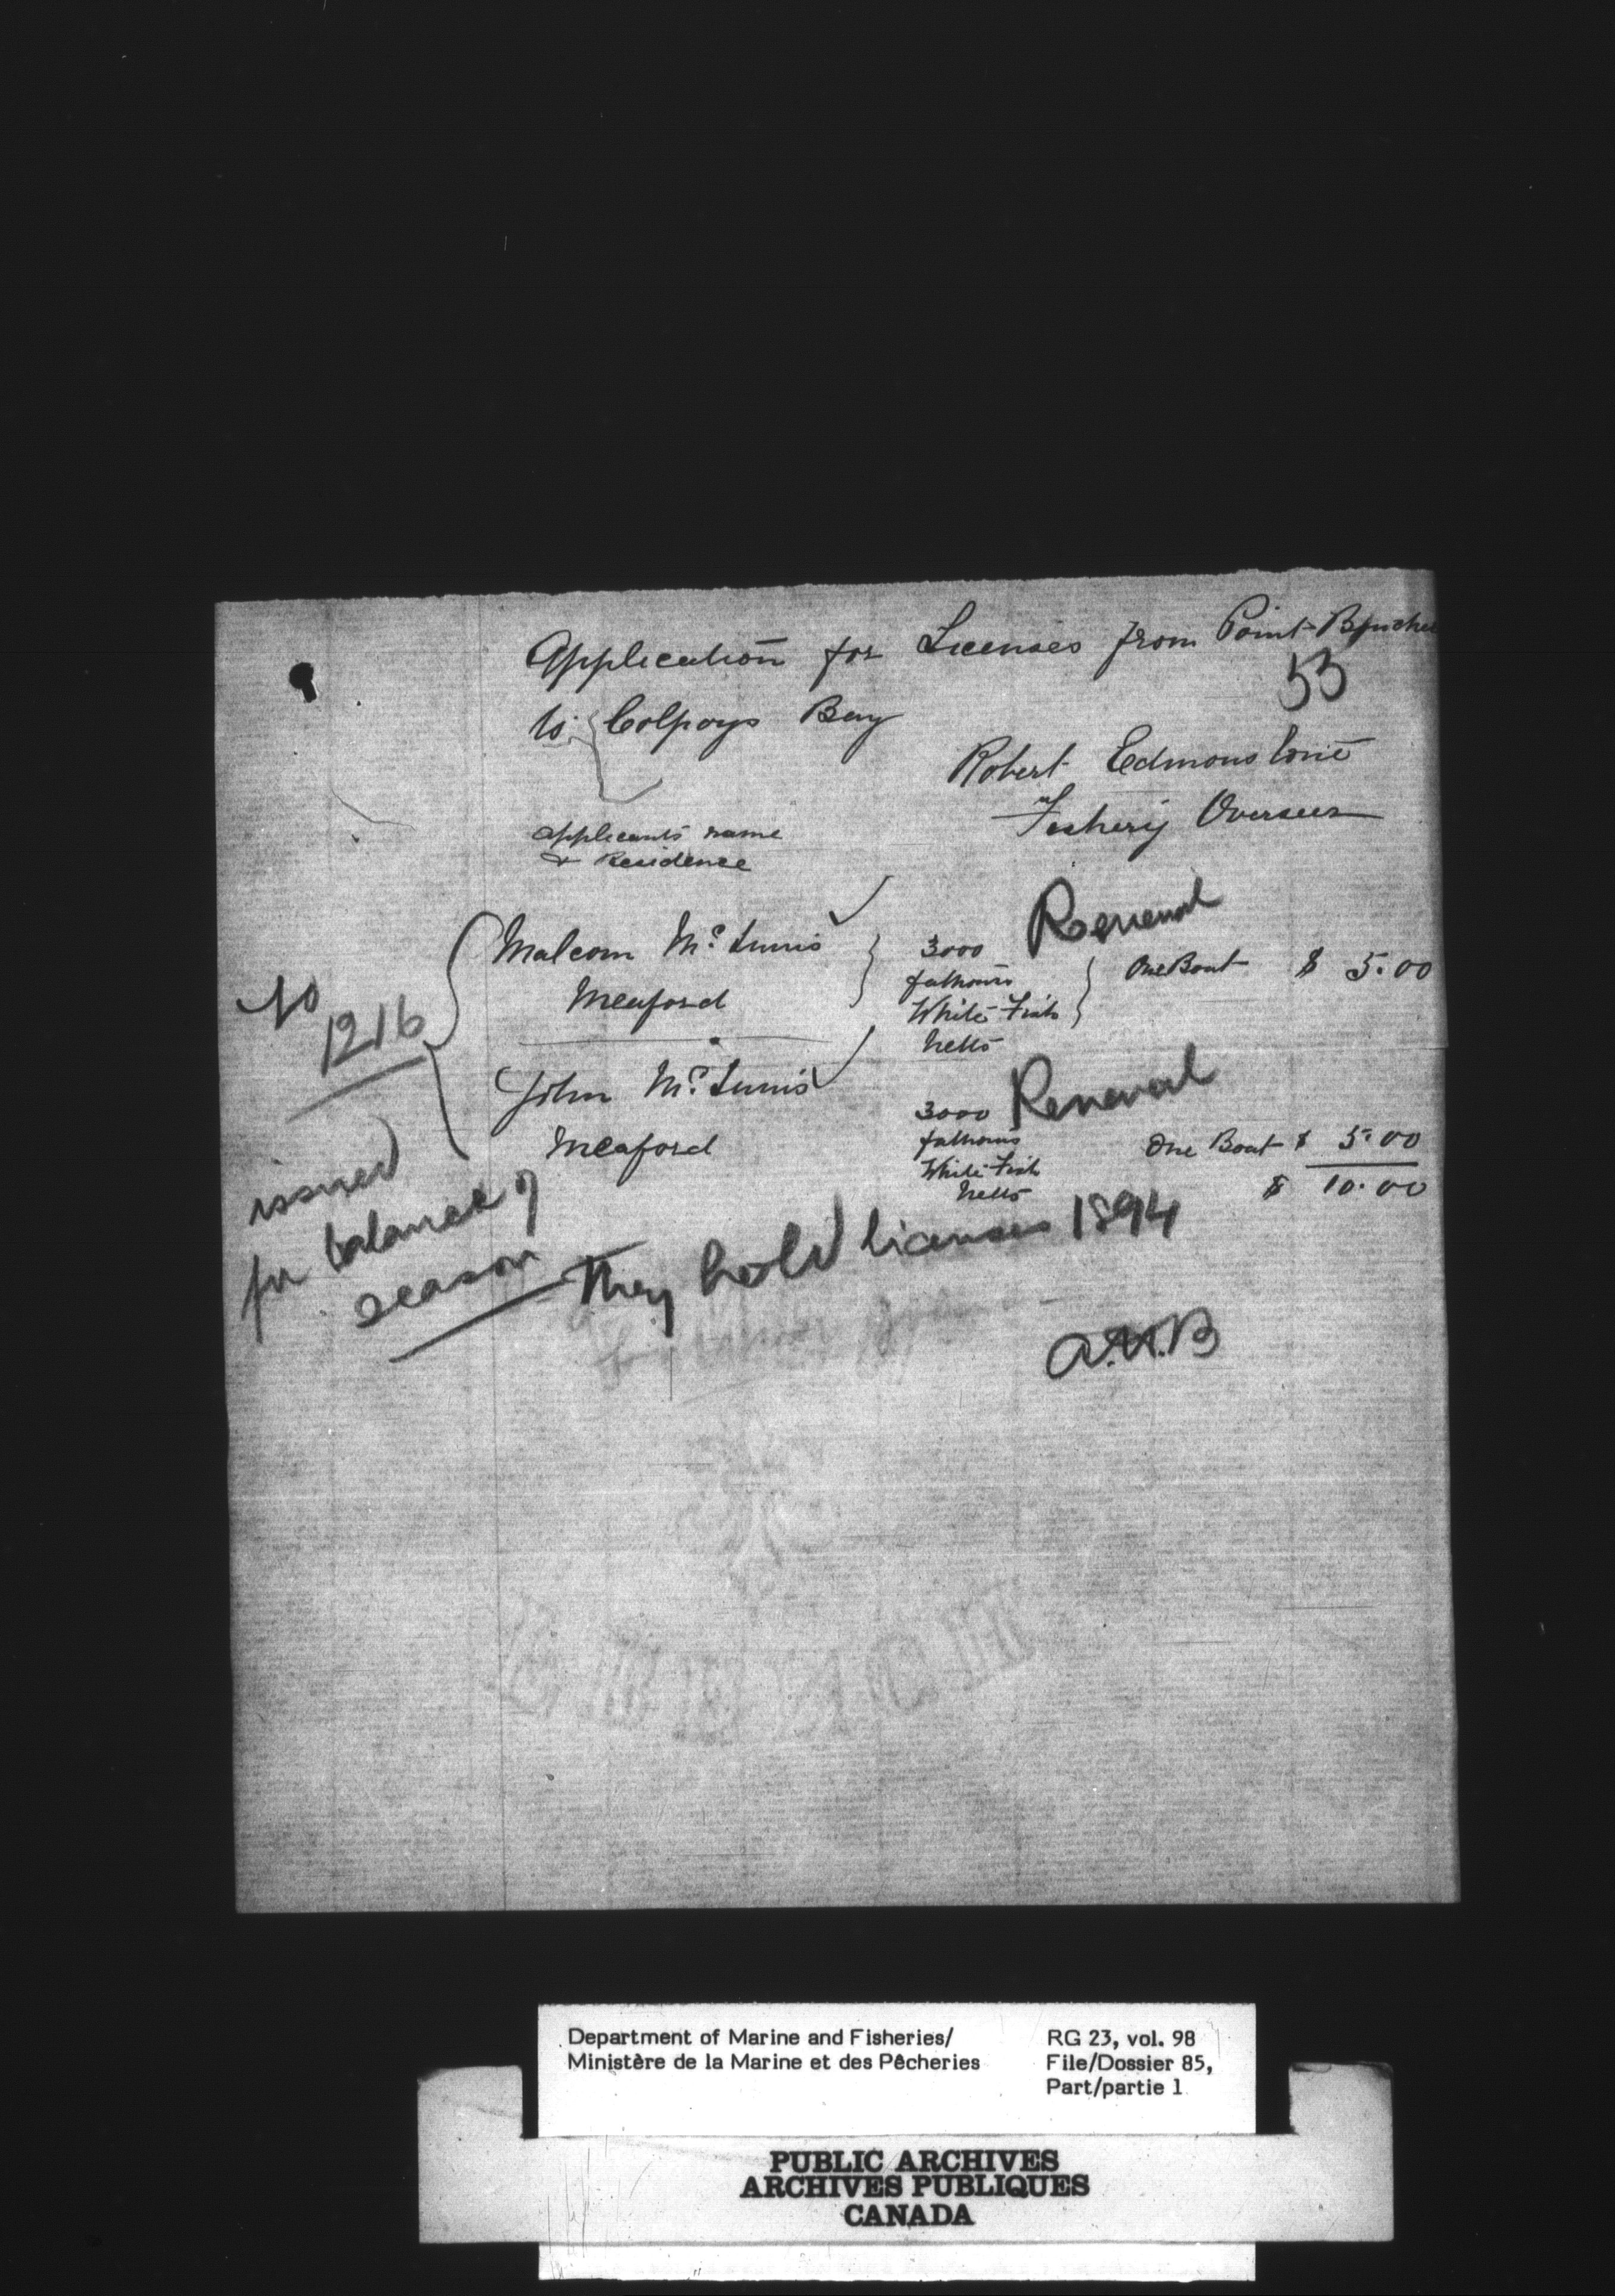 Application for Licenses from Point
53
to Colpoys Bay
Robert Edmonstone
Fishery Overseer
Applicants name
& Residence
Malcom Mc Innis
Meaford
3000
fathoms
White Fish
Netts
Renewal
One Boat $ 5.00
1216
John Mc Innis
Meaford
3000
fathoms
White Fish
Netts
Renewal
One Boat $ 5.00
$ 10.00
issued
for balance of
season
They hold licenses 1894
Department of Marine and Fisheries/
Ministère de la Marine et des Pêcheries
RG 23, vol. 98
File/Dossier 85,
Part/partie 1
PUBLIC ARCHIVES
ARCHIVES PUBLIQUES
CANADA